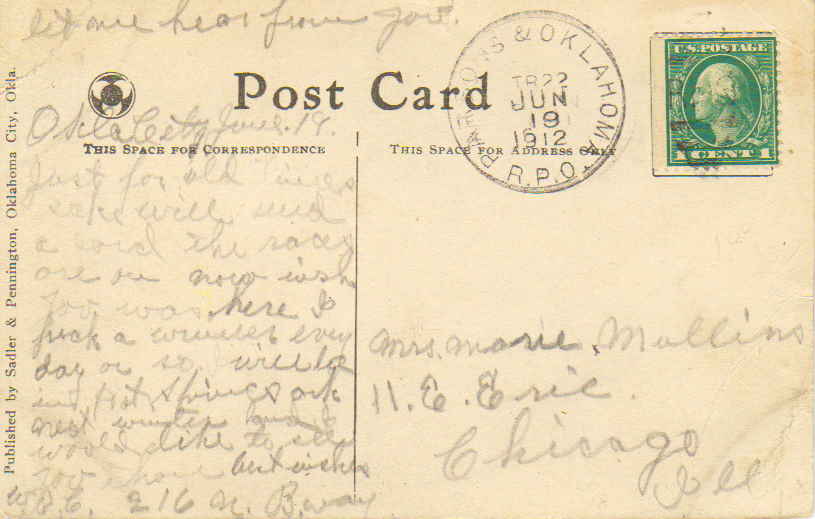 let me hear from you.
Post Card
Okla City June. 19.
THIS SPACE FOR CORRESPONDENCE
Just for old times
sake will send
a card the races
are on now wish
you was here I
pick a winner every
day or so. I will be
in Hot Springs ark
next winter and
would like to see
you there best wishes
W.B.C. 216 N. B.way
THIS SPACE FOR ADDRESS ONLY
Mrs. Marie. Mullins
11. E. Erie.
Chicago
Ill
PARSONS & OKLAHOMA
TR22
JUN
19
1912
R.P.O.
U.S. POSTAGE
1 CENT 1
Published by Sadler & Pennington, Oklahoma City, Okla.